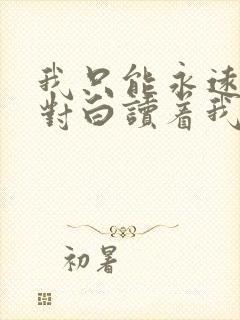 我只能永遠
對白讀着我
初暑